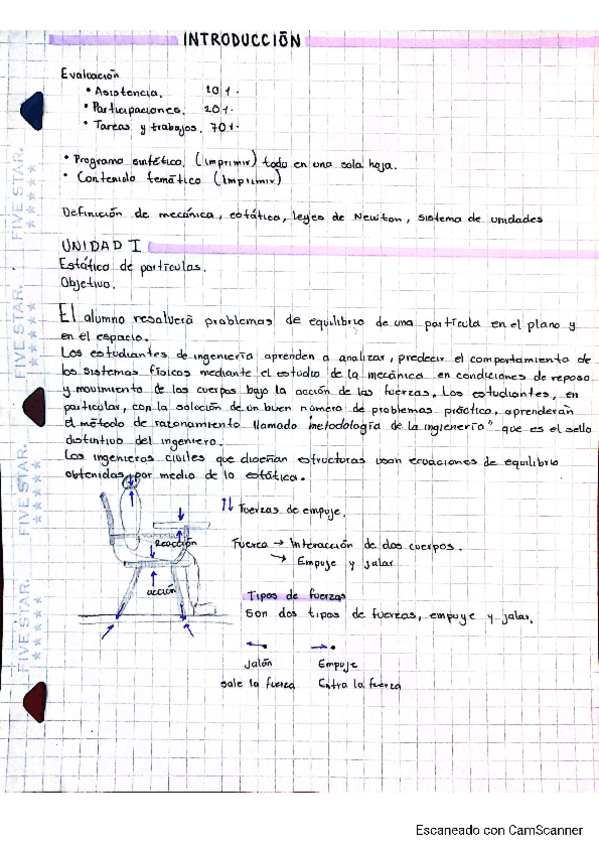 INTRODUCCIÓN
Evaluación
• Asistencia. 10 %.
• Participaciones. 20 %.
• Tareas y trabajos. 70 %.
• Programa sintético. (Imprimir) todo en una sola hoja.
• Contenido temático (Imprimir)
Definición de mecánica, estática, leyes de Newton, sistema de unidades
UNIDAD I
Estática de partículas.
Objetivo.
El alumno resolverá problemas de equilibrio de una partícula en el plano y
en el espacio.
Los estudiantes de ingeniería aprenden a analizar, predecir el comportamiento de
los sistemas físicos mediante el estudio de la mecánica en condiciones de reposo
y movimiento de los cuerpos bajo la acción de las fuerzas. Los estudiantes, en
particular, con la solución de un buen número de problemas práctico, aprenderán
el método de razonamiento llamado "metodología de la ingienería" que es el sello
distintivo del ingeniero.
Los ingenieros civiles que diseñan estructuras usan ecuaciones de equilibrio
obtenidas por medio de la estática.
↑↓ Fuerzas de empuje.
Reacción
acción
Fuerza → Interacción de dos cuerpos.
→ Empuje y jalar
Tipos de fuerzas
Son dos tipos de fuerzas, empuje y jalar.
Jalón Empuje
sale la fuerza Entra la fuerza
FIVE STAR.
FIVE STAR.
FIVE STAR.
FIVE STAR.
Escaneado con CamScanner